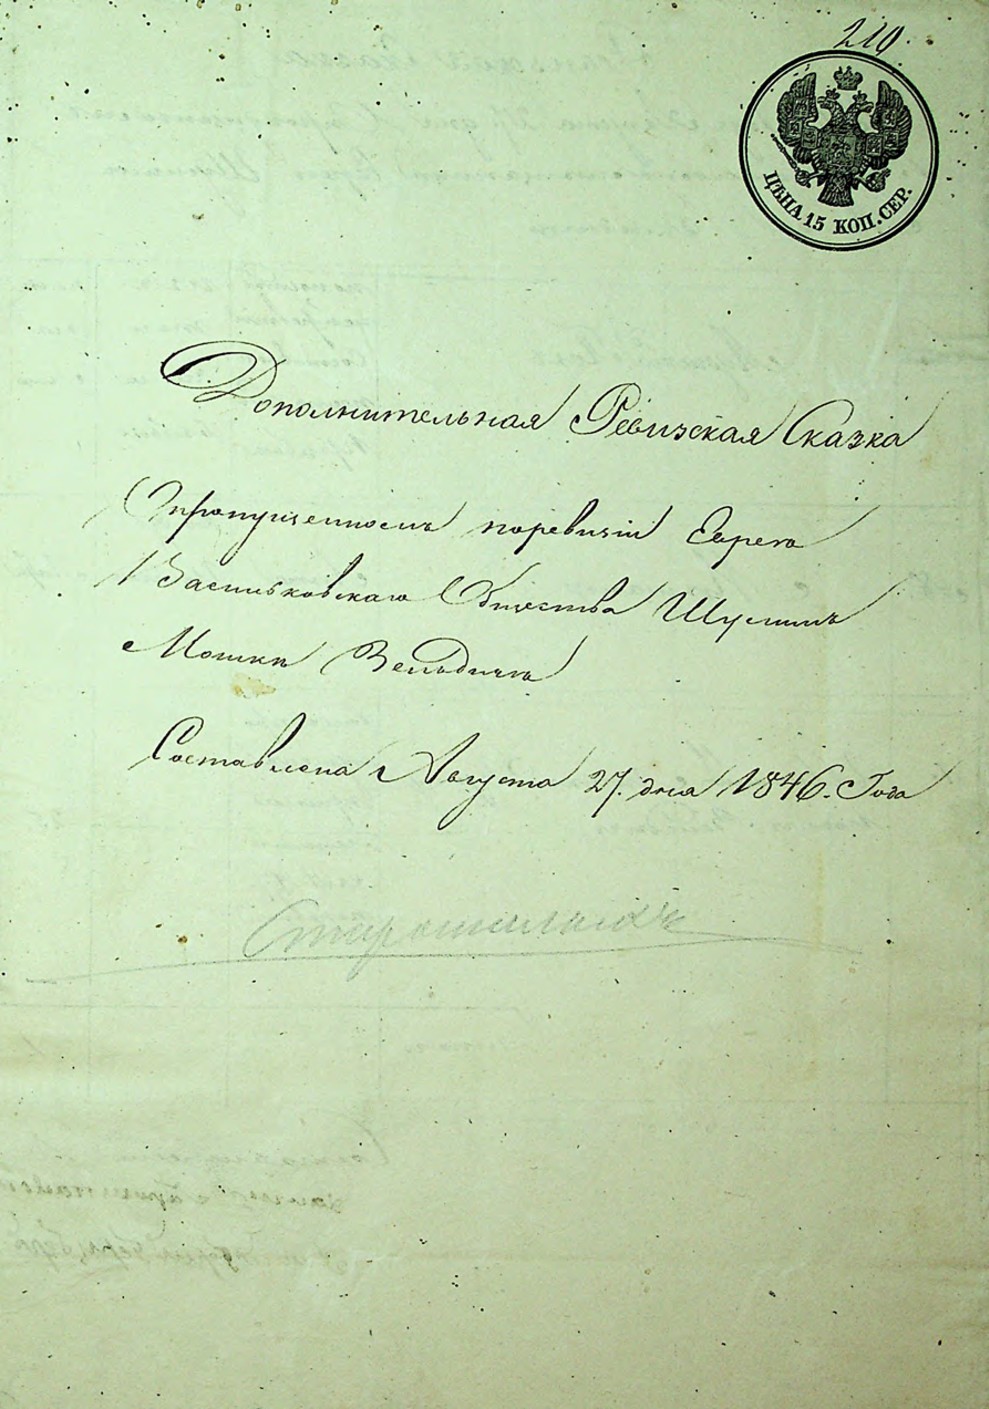 210.
ЦѢНА 15 КОП. СЕР.
Дополнительная Ревизская Сказка
О пропущенномъ по ревизіи Еврея
Васильковскаго Общества Шулимъ
Мошки Зельдичъ
Составлена Августа 27. дня 1846. Года